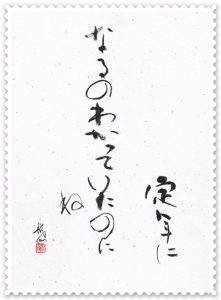 定年に
なるのわかっていたのに
ね